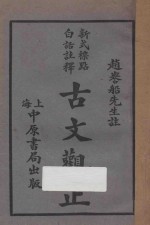 趙巻船先生註
新式標點
白話註釋
古文觀止
上海中原書局出版